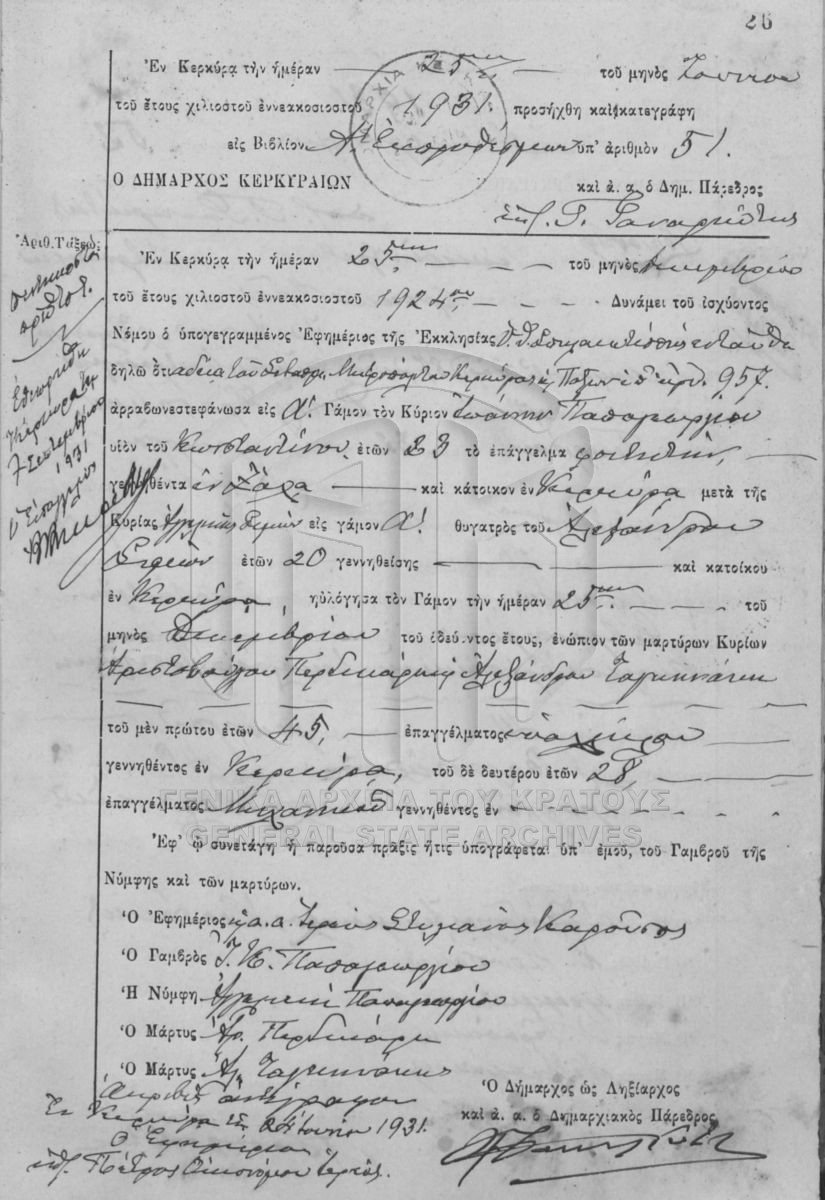 26
Ἐν Κερκύρᾳ τὴν ἡμέραν 25ην τοῦ μηνὸς Ἰουνίου
τοῦ ἔτους χιλιοστοῦ ἐννεακοσιοστοῦ 1931. προσήχθη καὶ κατεγράφη
εἰς Βιβλίον Α. ὑπ' ἀριθμὸν 51.
Ο ΔΗΜΑΡΧΟΣ ΚΕΡΚΥΡΑΙΩΝ καὶ ἀ. α. ὁ Δημ. Πάρεδρος
Ἀριθ. Τάξεως
Ἐν Κερκύρᾳ τὴν ἡμέραν 25ην τοῦ μηνὸς Δεκεμβρίου
τοῦ ἔτους χιλιοστοῦ ἐννεακοσιοστοῦ 1924 Δυνάμει τοῦ ἰσχύοντος
Νόμου ὁ ὑπογεγραμμένος Ἐφημέριος τῆς Ἐκκλησίας
δηλῶ ὅτι ἀδείᾳ τοῦ Σεβασμ. Μητροπολίτου Κερκύρας κ Παξῶν ὑπ' ἀρ. 957.
ἀρραβωνεστεφάνωσα εἰς Α! Γάμον τὸν Κύριον Ἰωάννην Παπαγεωργίου
υἱὸν τοῦ Κωνσταντίνου ἐτῶν 23 τὸ ἐπάγγελμα φοιτητὴν,
γεννηθέντα ἐν καὶ κάτοικον ἐν Κερκύρᾳ μετὰ τῆς
Κυρίας εἰς γάμον Α! θυγατρὸς τοῦ Ἀλεξάνδρου
ἐτῶν 20 γεννηθείσης καὶ κατοίκου
ἐν Κερκύρᾳ, ηὐλόγησα τὸν Γάμον τὴν ἡμέραν 25ην τοῦ
μηνὸς Δεκεμβρίου τοῦ ὁδεύοντος ἔτους, ἐνώπιον τῶν μαρτύρων Κυρίων
Ἀριστοβούλου Περδικάρη κ Ἀλεξάνδρου
τοῦ μὲν πρώτου ἐτῶν 45, ἐπαγγέλματος ὑπαλλήλου
γεννηθέντος ἐν Κερκύρᾳ, τοῦ δὲ δευτέρου ἐτῶν 28,
ἐπαγγέλματος Μηχανικοῦ γεννηθέντος ἐν
ΓΕΝΙΚΑ ΑΡΧΕΙΑ ΤΟΥ ΚΡΑΤΟΥΣ
GENERAL STATE ARCHIVES
Ἐφ' ᾧ συνετάγη ἡ παροῦσα πρᾶξις ἥτις ὑπογράφεται ὑπ' ἐμοῦ, τοῦ Γαμβροῦ τῆς
Νύμφης καὶ τῶν μαρτύρων.
Ὁ Ἐφημέριος κ α. α. Ἱερεὺς Στυλιανὸς Καροῦσος
Ὁ Γαμβρὸς Ἰ. Κ. Παπαγεωργίου
Ἡ Νύμφη Παπαγεωργίου
Ὁ Μάρτυς Ἀρ. Περδικάρης
Ὁ Μάρτυς Ἀλ.
Ἀκριβὲς ἀντίγραφον
Ἐν Κερκύρᾳ τῇ Ἰουνίου 1931.
Ὁ Ἐφημέριος
Πέτρος Οἰκονόμου ἱερεύς.
Ὁ Δήμαρχος ὡς Ληξίαρχος
καὶ ἀ. α. ὁ Δημαρχιακὸς Πάρεδρος
Ἐθεωρήθη
Κέρκυρα τῇ
7 Σεπτεμβρίου
1931